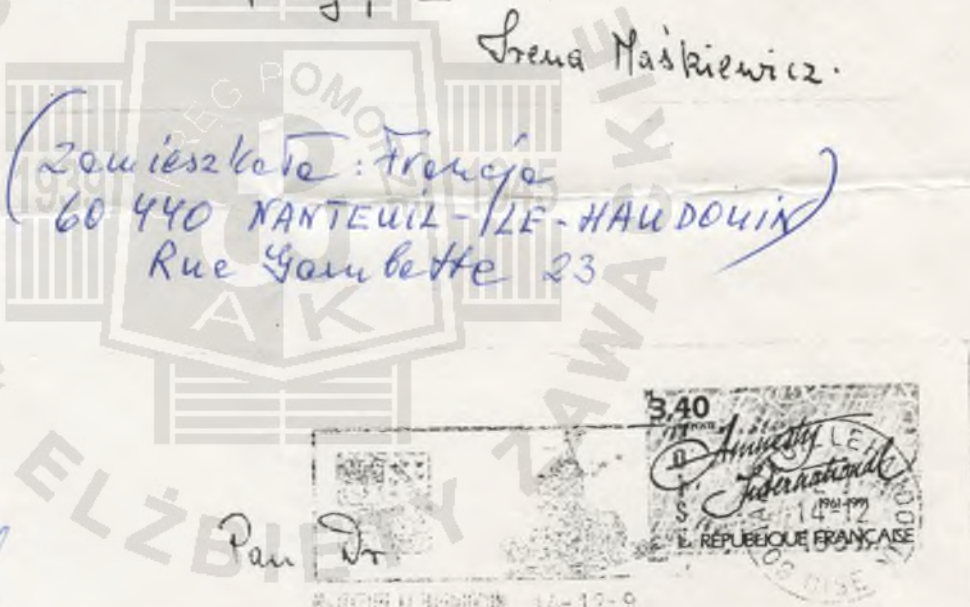 Irena Maśkiewicz.
(Zamieszkała: Francja
60 440 NANTEUIL-/LE-HAUDOUIN)
Rue Gambette 23
3,40
Amnesty
International
1961-1991
14-12
RÉPUBLIQUE FRANÇAISE
OISE
Pan Dr
1939
1945
POMO
AK
ELŻBIETY ZAWACKIE